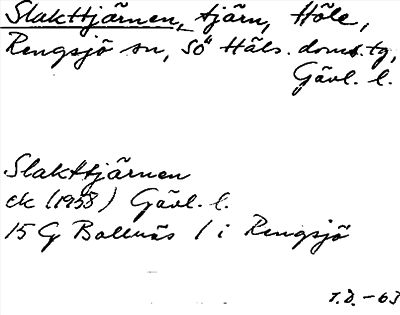 Slakttjärnen, tjärn, Höle,
Rengsjö sn, Sö Häls. doms.tg,
Gävl. l.
Slakttjärnen
ek (1958) Gävl. l.
15 G Bollnäs / i Rengsjö
T.D. - 63